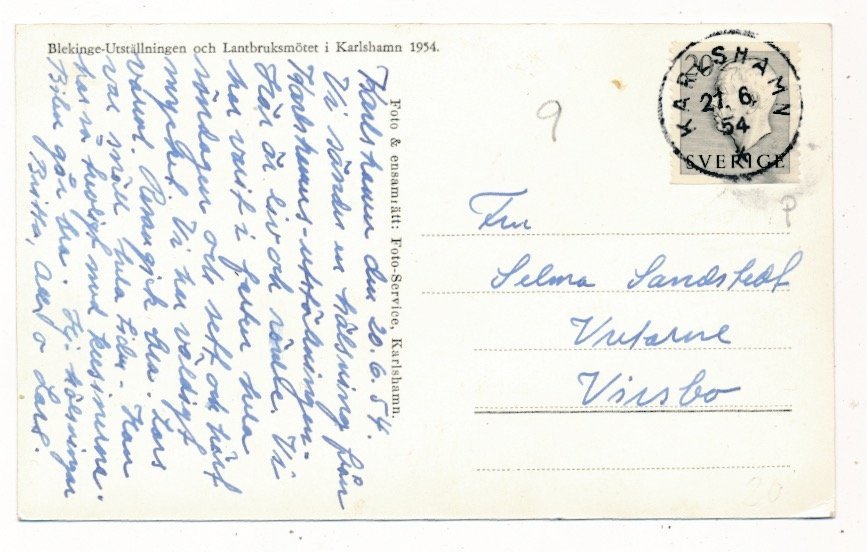 Blekinge-Utställningen och Lantbruksmötet i Karlshamn 1954.
Karlshamn den 20.6.54.
Vi sänder en hälsning från
Karlshamns-utställningen.
Här är liv och rörelse. Vi
har varit i farten hela
söndagen och sett och hört
mycket. Vi har väldigt
varmt. Resan gick bra. Lars
var snäll hela tiden. Han
har så trevligt med kusinerna.
Bilen går bra. Hj. hälsningar
Britta, Allf o Lars.
Foto & ensamrätt: Foto-Service, Karlshamn.
20
KARLSHAMN
21. 6
54
SVERIGE
9
Fru
Selma Sandstedt
Vretarne
Virsbo
20